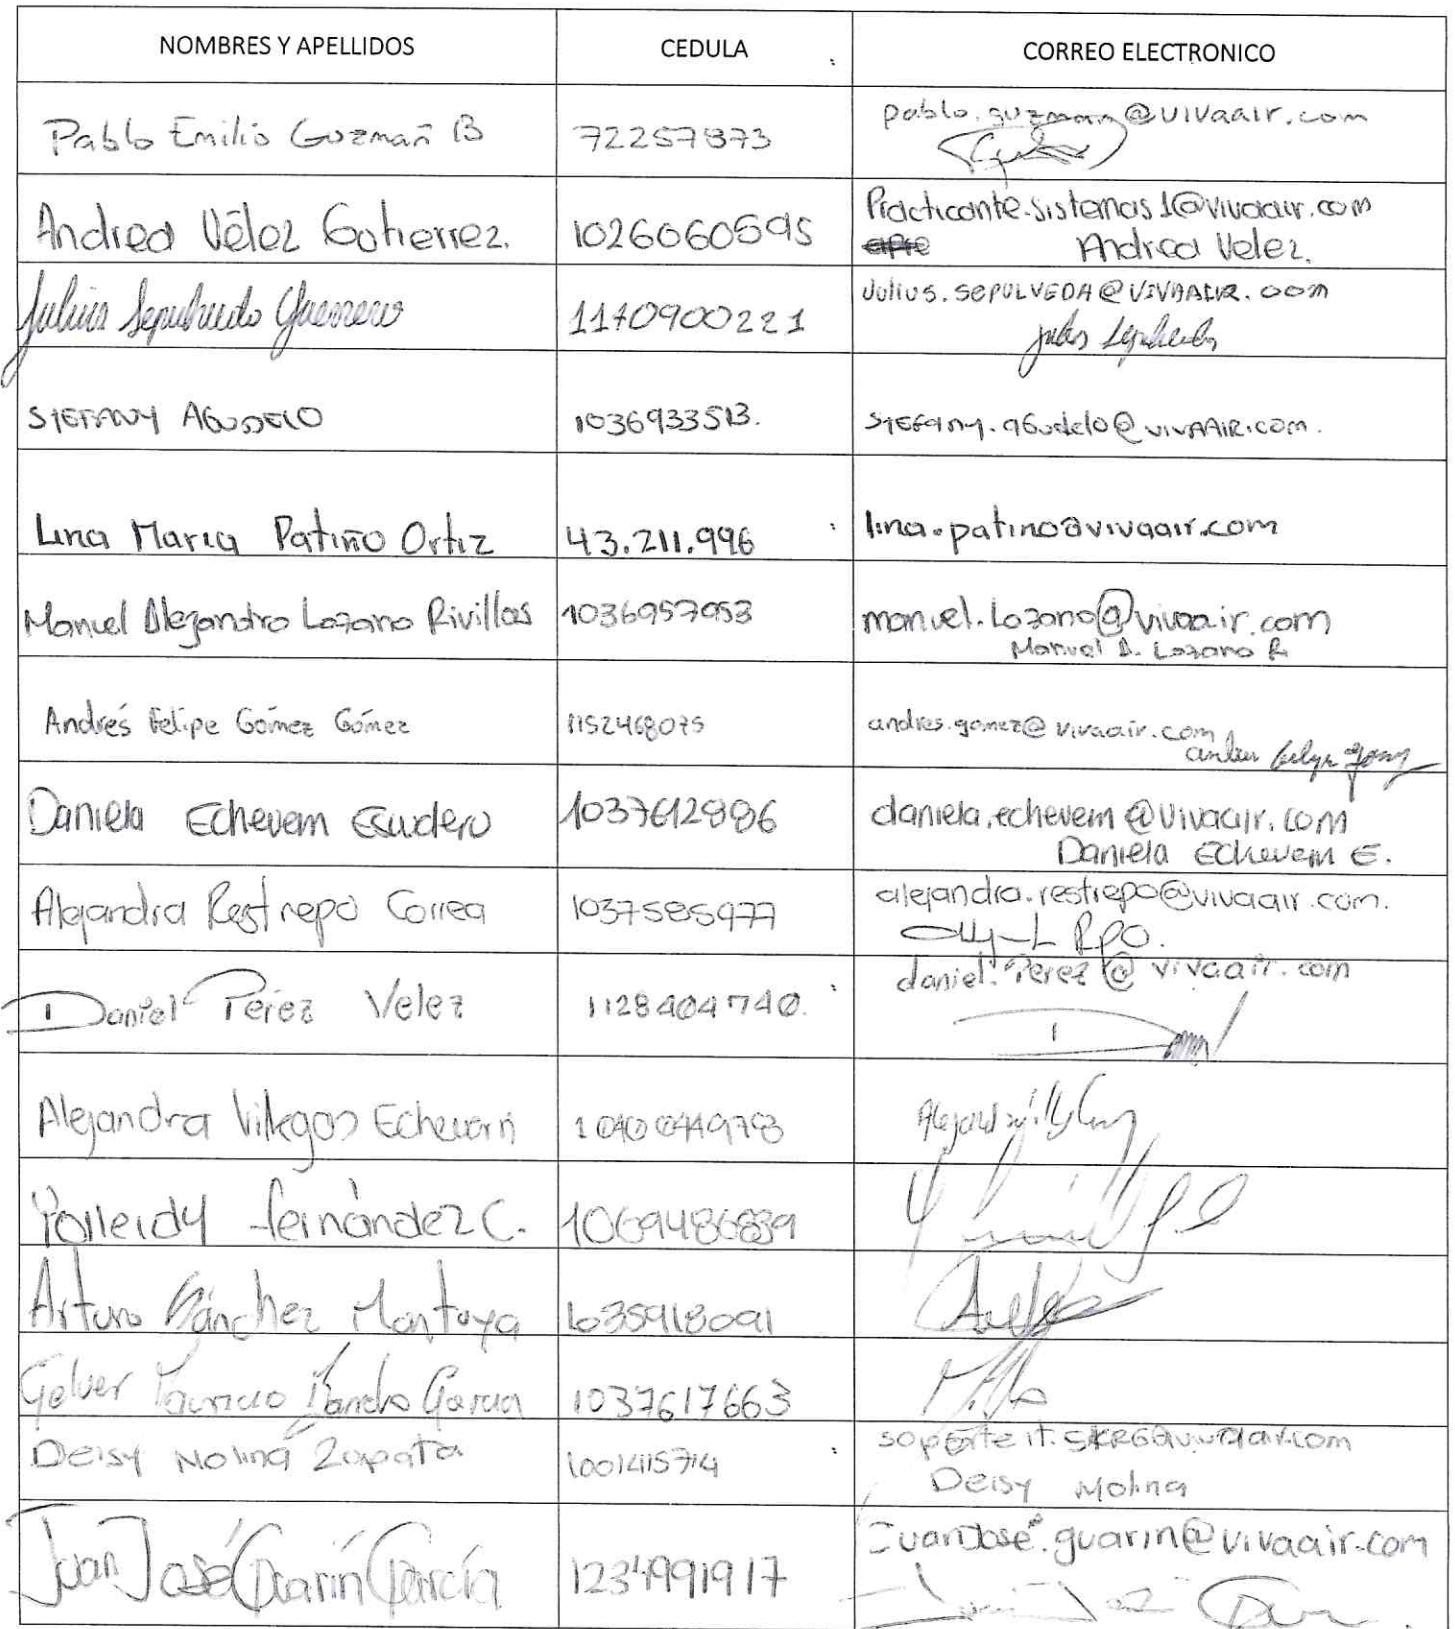 NOMBRES Y APELLIDOS CEDULA CORREO ELECTRONICO
Pablo Emilio Guzmañ B 72257873 pablo.guzman@vivaair.com
Andrea Vélez Gutierrez. 1026060595 Practicante.sistemas1@vivaair.com
Andrea Velez.
Julius Sepulveda Guerrero 1140900221 Julius.SEPULVEDA@VIVAAIR.com
STEFANY AGUDELO 1036933513. STEFany.aGudelo@vivAAIR.com.
Lina Maria Patiño Ortiz 43.211.996 lina.patino@vivaair.com
Manuel Alejandro Lozano Rivillas 1036957953 manuel.Lozano@vivaair.com
Manuel A. Lozano R
Andrés Felipe Gómez Gómez 1152468075 andres.gomez@vivaair.com
Daniela Echeverri Escudero 1037612886 daniela.echeverri@vivaair.com
Daniela Echeverri E.
Alejandra Restrepo Correa 1037585977 alejandra.restrepo@vivaair.com.
RPO.
Daniel Pérez Velez 1128404740. daniel.Perez@vivaair.com
Alejandra Villegas Echeverri
Yolleidy fernández C. 1069486839
Arturo Sánchez Montoya 1035918091
Gelver Mauricio Garcia 1037617663
Deisy Molina Zapata 1001415714 soporteit.
Deisy Molina
Juan José Guarín García 1234991917 JuanJosé.guarin@vivaair.com